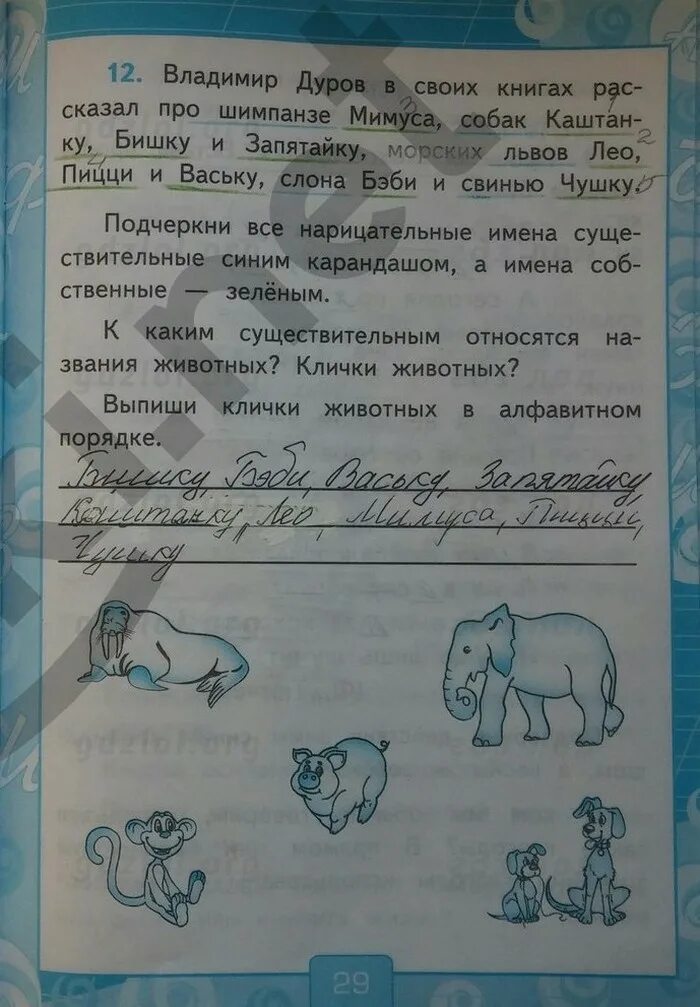 12. Владимир Дуров в своих книгах рас-
сказал про шимпанзе Мимуса, собак Каштан-
ку, Бишку и Запятайку, морских львов Лео,
Пицци и Ваську, слона Бэби и свинью Чушку.
Подчеркни все нарицательные имена суще-
ствительные синим карандашом, а имена соб-
ственные — зелёным.
К каким существительным относятся на-
звания животных? Клички животных?
Выпиши клички животных в алфавитном
порядке.
Бишку, Бэби, Ваську, Запятайку
Каштанку, Лео, Мимуса, Пицци,
Чушку
29